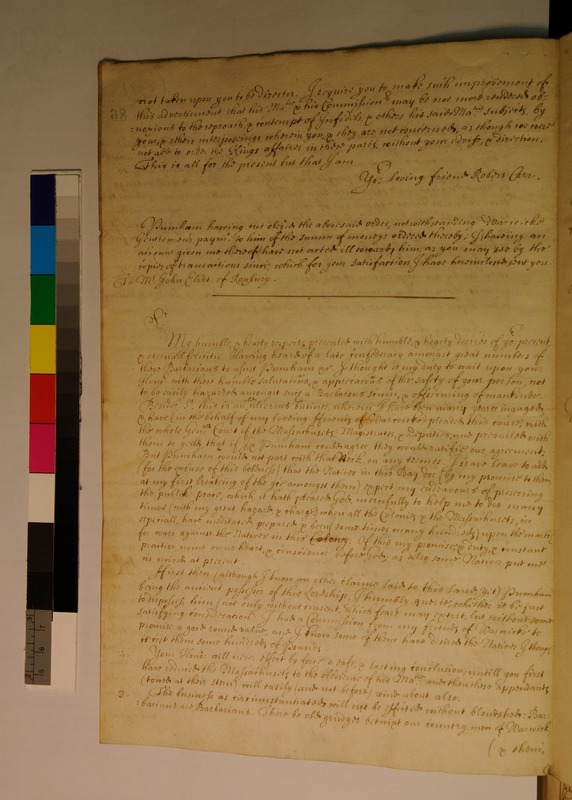 not taken upon you to be director. I require you to make such improvement of
this advertiment that his Ma.ties & his Commission may be not more rendered ob-
noxious to the reproach & contempt of Infidels & others his said Ma.ties subjects, by
yours & others interposeings wherein you & they are not concerned, as though wee were
not able to order the Kings affaires in these parts without your advise & direction.
This is all for the present but that I am
Yo.r Loving friend Robert Carr.
Pumham having not obeyed the abovesaid order, notwithstanding Warwicke
Gentlemens paym.t to him of the summ of moneys ordered thereby, I having an
account given me thereof have not acted ill towards him, as you may see by the
copies of transactions since, which for your satisfaction I have herein inclosed sent you.
To M.r John Eliot of Roxbury.
S.r
My humble & hearty respects presented with humble & hearty desires of yo.r present
& eternall felicitie. Having heard of a late confederacy amongst great numbers of
these Barbarians to assist Pumham &c. I thought it my duty to wait upon your
Hono.r with these humble salutations, & approbations of the safety of your person, not
to be easily hazarded amongst such a Barbarous scum, & offscowring of mankinde.
Besides S.r this is an ulcerous busines, wherein I have ben many yeares ingaged,
& have (in the behalf of my loveing friends of Warwicke) pleaded this cause, with
the whole Gen.ll Court of the Massachusets Magistrates, & deputies, and prevailed with
them to yeeld, that if Pumham would agree, they would ratifie our agreement.
But Pumham would not part with that Neck on any termes. I crave leave to add
(for the excuse of this boldnes) that the Natives in this Bay doe (by my promise to them
at my first breaking of the yce amongst them) expect my endeavours of preserving
the publick peace, which it hath pleased God mercifully to help me to doe many
times (with my great hazard & charge) when all the Colonies & the Massachusets, in
especiall, have meditated prepared & been (some times many hundreds) upon the march
for warr against the Natives in this Colony. Of this my promise, & duty & constant
practise mine owne heart & conscience before God, as also some Natives put me
in minde at present.
First then (although I know an other claime laid to this land yet) Pumham
being the ancient possessor of this Lordship, I humbly querie whether it be just
to dispossess him (not only without consent, which feare may extort, but) without some
satisfying consideration. I had a Commission from my friends of Warwicke to
promise a good round value, and I know some of them have desired the Natives I though
it cost them some hundreds of Pounds.
2. Your Hono.r will never effect by force a safe, & lasting conclusion, untill you first
have reduced the Massachusets to the obedience of his Ma.tie and then these appendants
(towed at their stern) will easily (and not before) winde about also.
3. The business as circumstantiated will not be effected without bloodshed: Bar-
barians are Barbarians. There be old grudges betwixt our country men of Warwick
(& them.